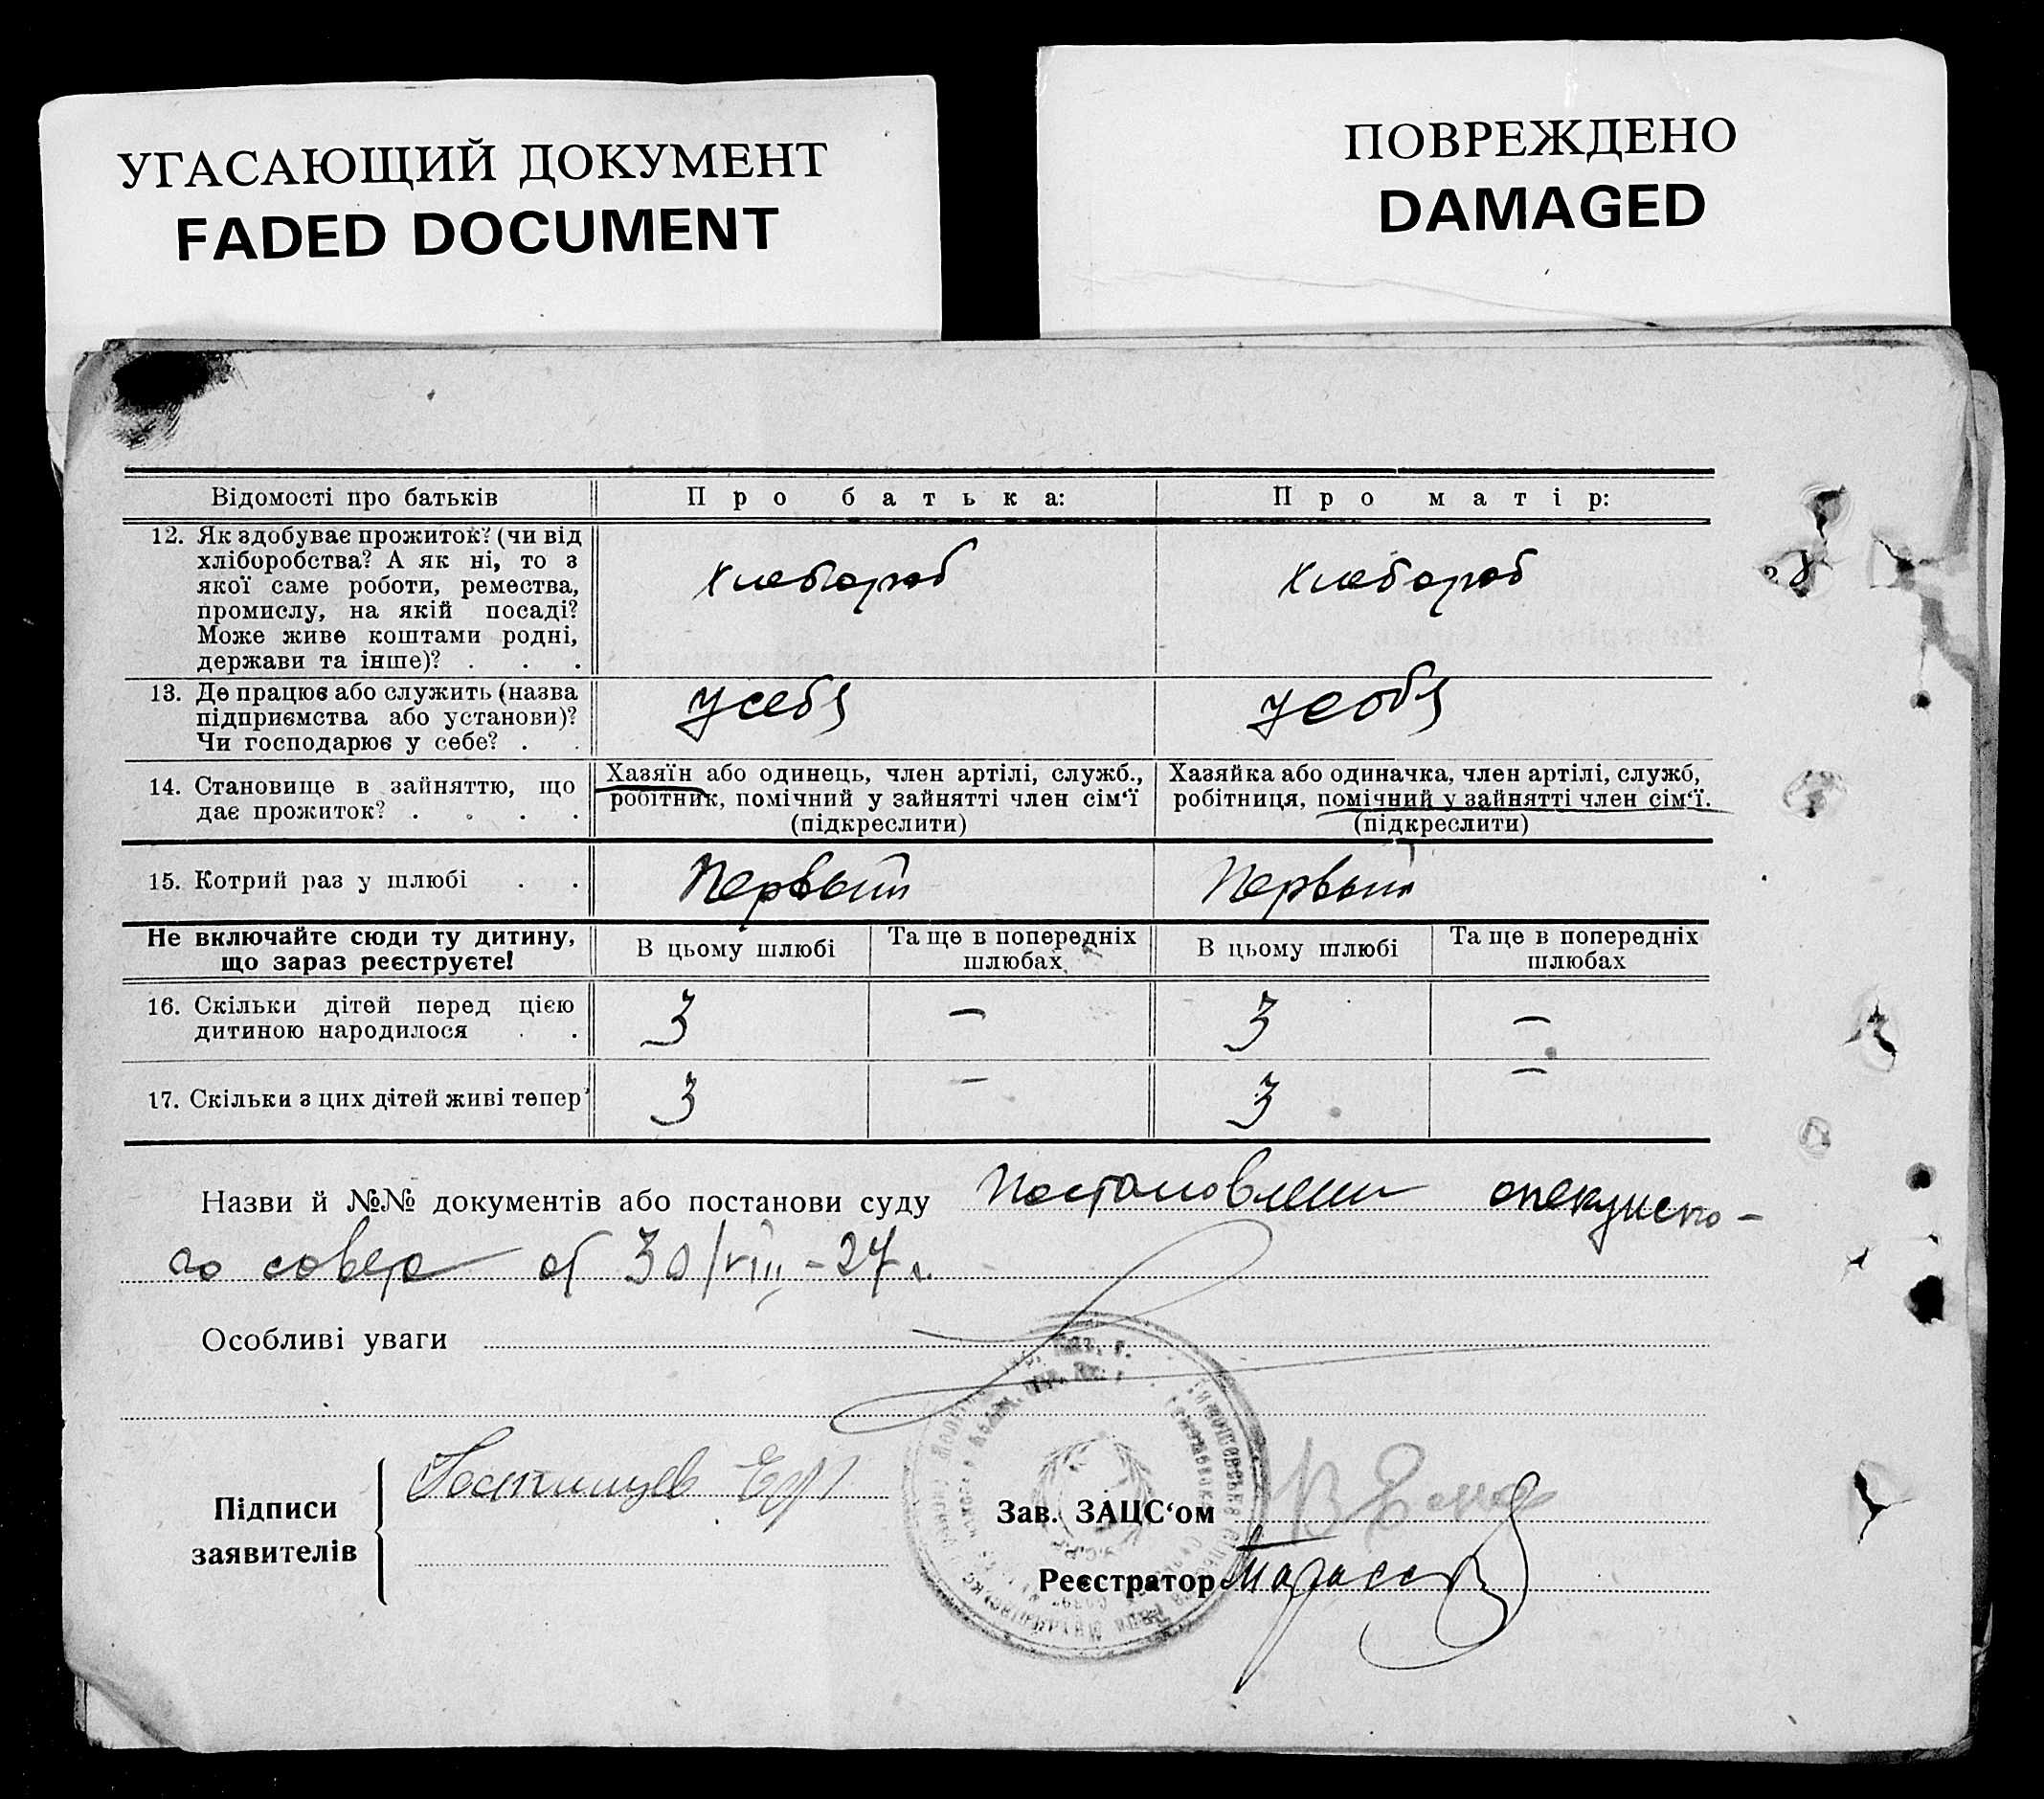 УГАСАЮЩИЙ ДОКУМЕНТ
FADED DOCUMENT
ПОВРЕЖДЕНО
DAMAGED
Відомості про батьків
Про батька:
Про матір:
12. Як здобуває прожиток? (чи від
хліборобства? А як ні, то з
якої саме роботи, ремества,
промислу, на якій посаді?
Може живе коштами родні,
держави та інше)? . . .
хлебороб
хлебороб
13. Де працює або служить (назва
підприємства або установи)?
Чи господарює у себе? . .
у себя
у собя
14. Становище в зайняттю, що
дає прожиток? . . . .
Хазяїн або одинець, член артілі, служб.,
робітник, помічний у зайнятті член сім‘ї
(підкреслити)
Хазяйка або одиначка, член артілі, служб,
робітниця, помічний у зайнятті член сім‘ї.
(підкреслити)
15. Котрий раз у шлюбі . .
Первый
Первый
Не включайте сюди ту дитину,
що зараз реєструєте!
В цьому шлюбі
Та ще в попередніх
шлюбах
В цьому шлюбі
Та ще в попередніх
шлюбах
16. Скільки дітей перед цією
дитиною народилося . .
3 — 3 —
17. Скільки з цих дітей живі тепер
3 — 3 —
Назви й №№ документів або постанови суду Постановлени опекунско-
го совета от 30/VIII - 27 г.
Особливі уваги
Підписи
заявителів
Зав. ЗАЦС‘ом
Реєстратор